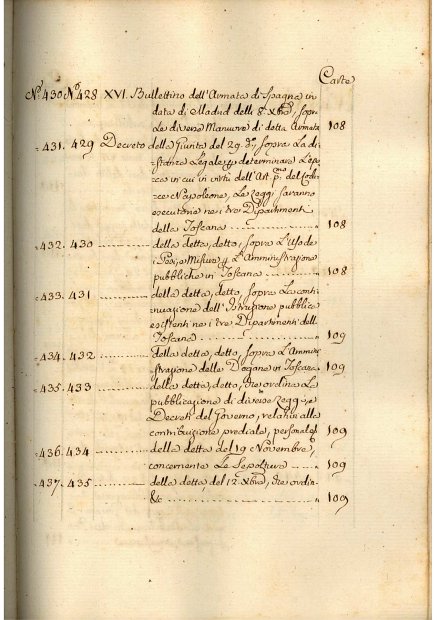 Carte
Nº. 430. Nº. 428 XVI. Bullettino dell'Armata di Spagna in
data di Madrid delli 8. Xbre, sopra
Le diverse Manuvre di detta Armata 108
" 431. 429 Decreto della Giunta del 29. do., sopra La di
stanza Legale, p determinare L'epo
ca in cui in virtù dell'Art. p.º del Codi
ce Napoleone, Le Leggi saranno
esecutorie nei tre Dipartimenti
della Toscana " 108
" 432. 430 della detta, detto, sopra L'Uso de
i Pesi, e Misure p L'Amministrazione
pubbliche in Toscana " 108
" 433. 431 della detta, detto sopra La conti
nuazione dell'Istruzione pubblica
esistenti nei tre Dipartimenti dell
Toscana " 109
" 434. 432 della detta, detto, sopra L'Ammini
strazione delle Dogane in Toscana " 109
" 435. 433 della detta, detto, che ordina La
pubblicazione di diverse Leggi, e
Decreti del Governo, relativi alla
contribuzione prediale, personale 109
" 436. 434 della detta del 19 Novembre,
concernente Le Sepolture " 109
" 437. 435 della detta, del 12. Xbre, che ordin.
&c " 109